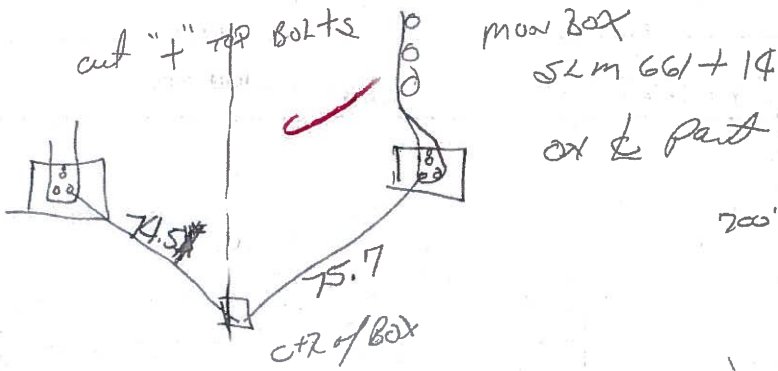 cut "+" TOP BOLTS
MON BOX
SLM 661+14
on ℄ Part
200'
74.5
75.7
ctr of BOX